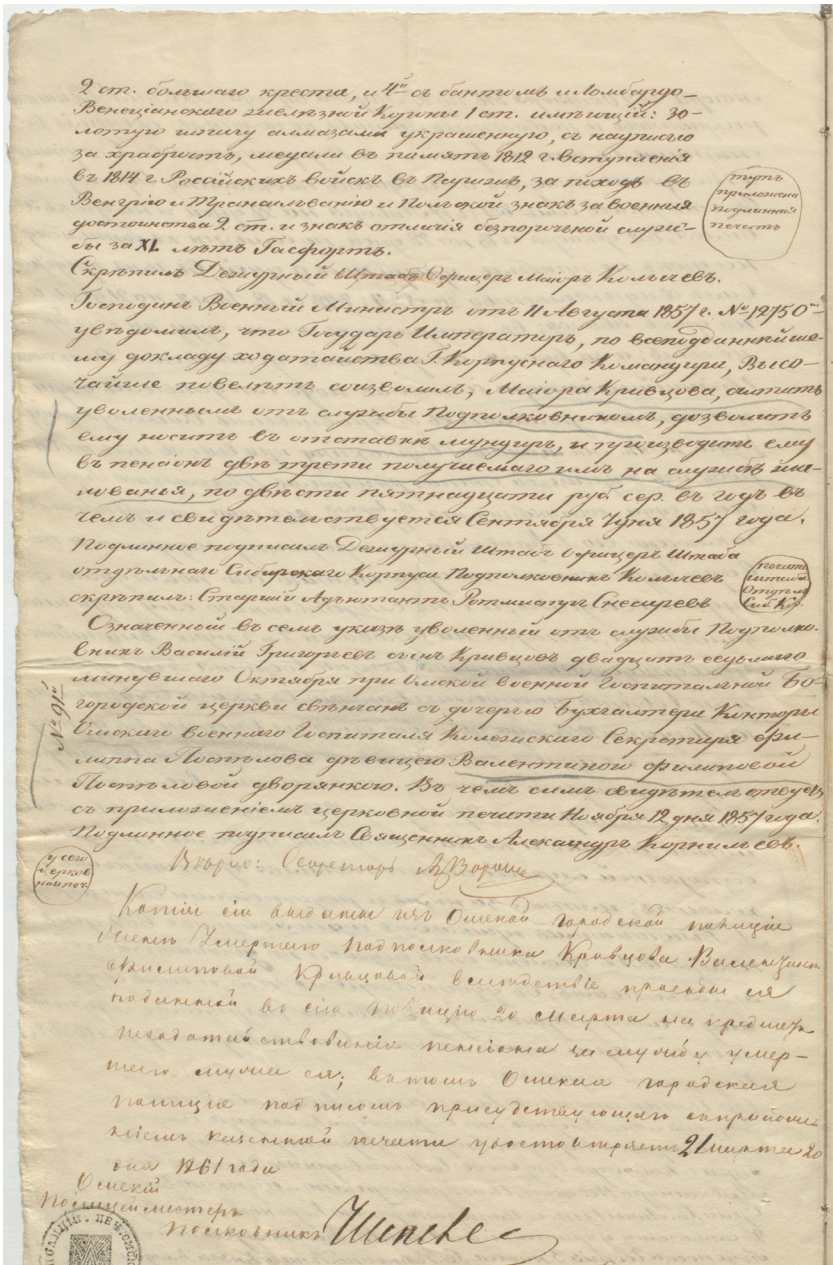 2 ст. большаго креста, и 4й съ бантомъ и Ломбардо-
Венеціанского желѣзной Куроны 1 ст. имѣющій: зо-
лотую шпагу алмазами украшенную, съ надписью
за храбрость, медали въ память 1812 г. вступленія
въ 1814 г. Россійскихъ войск въ Парижъ, за походъ въ
Венгрію и Трансильванію и Польской знакъ за военныя
достоинства 2 ст. и знак отличія безпорочной служ-
бы за XL лѣтъ Гасфортъ.
тутъ
приложена
подлинная
печать
Скрѣпилъ Дежурный Штабъ Офицеръ Маіоръ Колычевъ.
Господинъ Военный Министръ отъ 11 Августа 1857 г. № 12750
увѣдомилъ, что Государь Императоръ, по всеподданнѣйше-
му докладу ходатайства Г. Корпуснаго Командира, Высо-
чайше повелѣть соизволилъ, Маіора Кривцова, считать
уволеннымъ отъ службы Подполковникомъ, дозволить
ему носить въ отставкѣ мундиръ, и производить ему
въ пенсіонъ двѣ трети получаемаго имъ на службѣ жа-
лованья, по двѣсти пятнадцати руб сер. въ годъ въ
чемъ и свидѣтельствуется Сентября 7 дня 1857 года.
Подлинное подписалъ Дежурный Штабъ Офицеръ Штаба
отдѣльнаго Сибирскаго Корпуса Подполковникъ Колычевъ
скрѣпилъ: Старшій Адъютантъ Ротмистръ Снесаревъ
печать
штаба
Отдѣл
Сиб. Кор.
Означенный въ семъ указѣ уволенный отъ службы Подполко-
вникъ Василій Григорьевъ сынъ Кривцовъ двадцать седьмаго
минувшаго Октября при Омской военной Госпитальной Бо-
городской церкви вѣнчанъ съ дочерью Бухгалтера Конторы
Омскаго военнаго Госпиталя Колежскаго Секретаря Фи-
липпа Постѣлова дѣвицею Валентиною Филиповой
Постѣловой дворянкою. Въ чемъ симъ свидѣтельствуетъ
съ приложеніемъ церковной печати Ноября 12 дня 1857 года.
Подлинное подписалъ Священникъ Александръ Корнильевъ.
№ 91й
у сего
церков
ная печ
Вѣрно: Секретарь
Копія сія выдана изъ Омской городской полиціи
Женѣ Умершаго Подполковника Кривцова Валентинѣ
Филиповой Кривцовой вслѣдствіе прозьбы ея
поданной въ сію полицію 20 марта на предметъ
походатайствованія пенсіона за службу умер-
шаго мужа ея; въ томъ Омская городская
полиція подписомъ присудствующаго съ приложе-
ніемъ казенной печати удостовѣряетъ 21 марта 20
дня 1861 года
Омскій
Полицейместеръ
Полковникъ